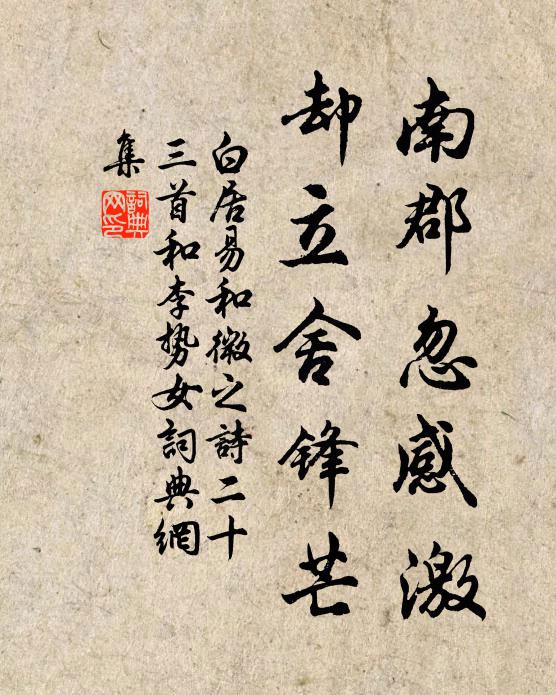 南郡忽感激
却立舍锋芒
白居易和微之詩二十
三首和李势女詞典網
集
詞典
网印